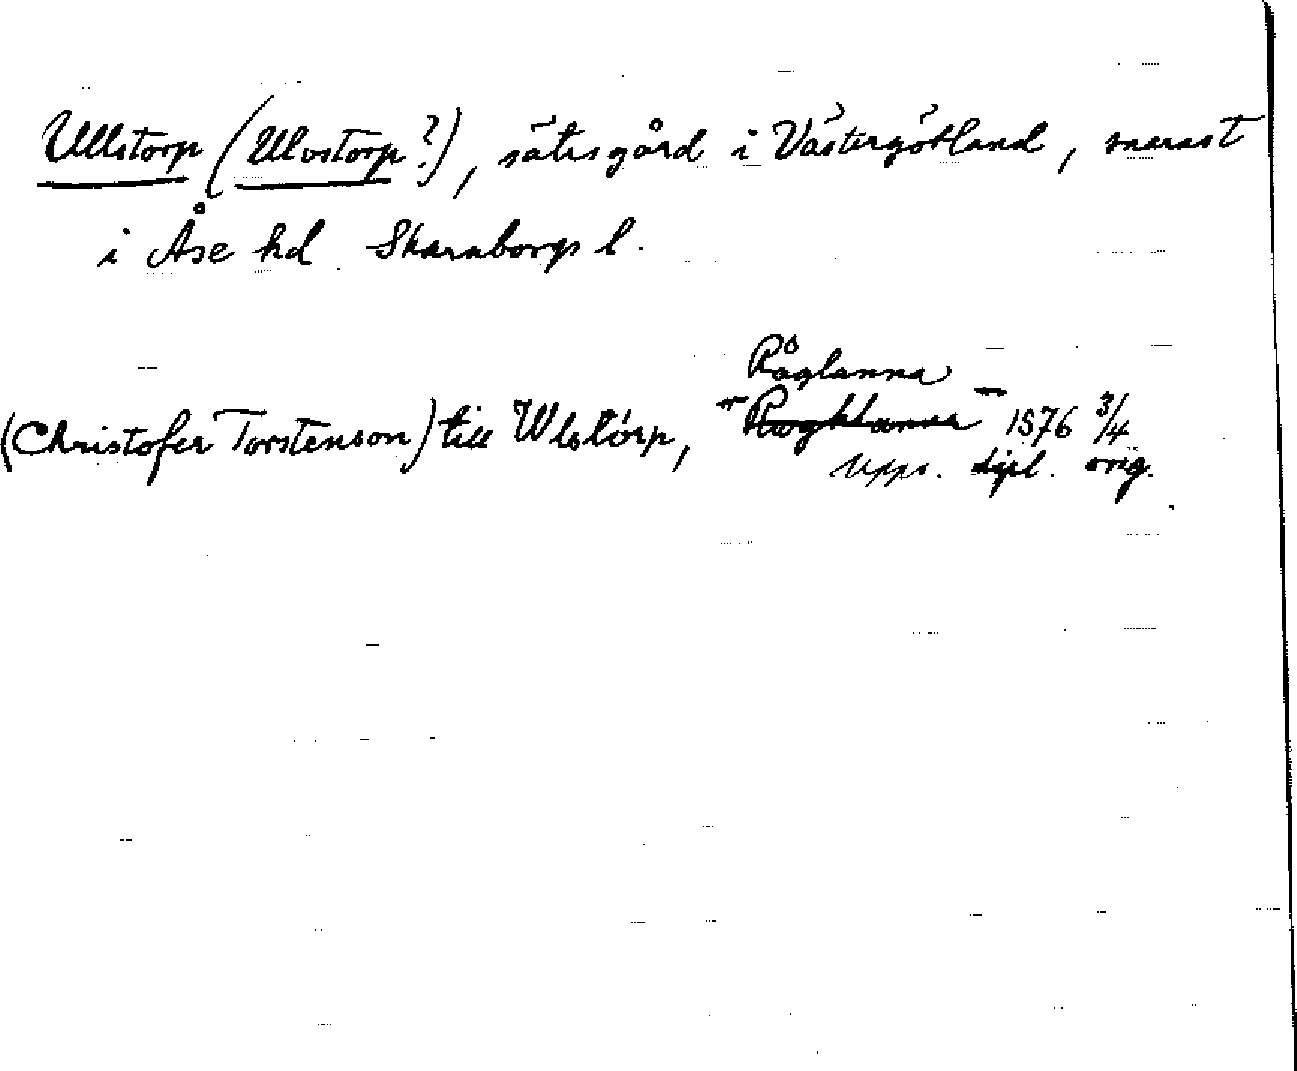 Ullstorp (Ulvstorp?), sätesgård i Västergötland, snarast
i Åse hd Skaraborgs l.
Råglanna
(Christofer Torstenson) till Wlstorp, " Rwgklanna 1576 3/4
Upps. dipl. orig.